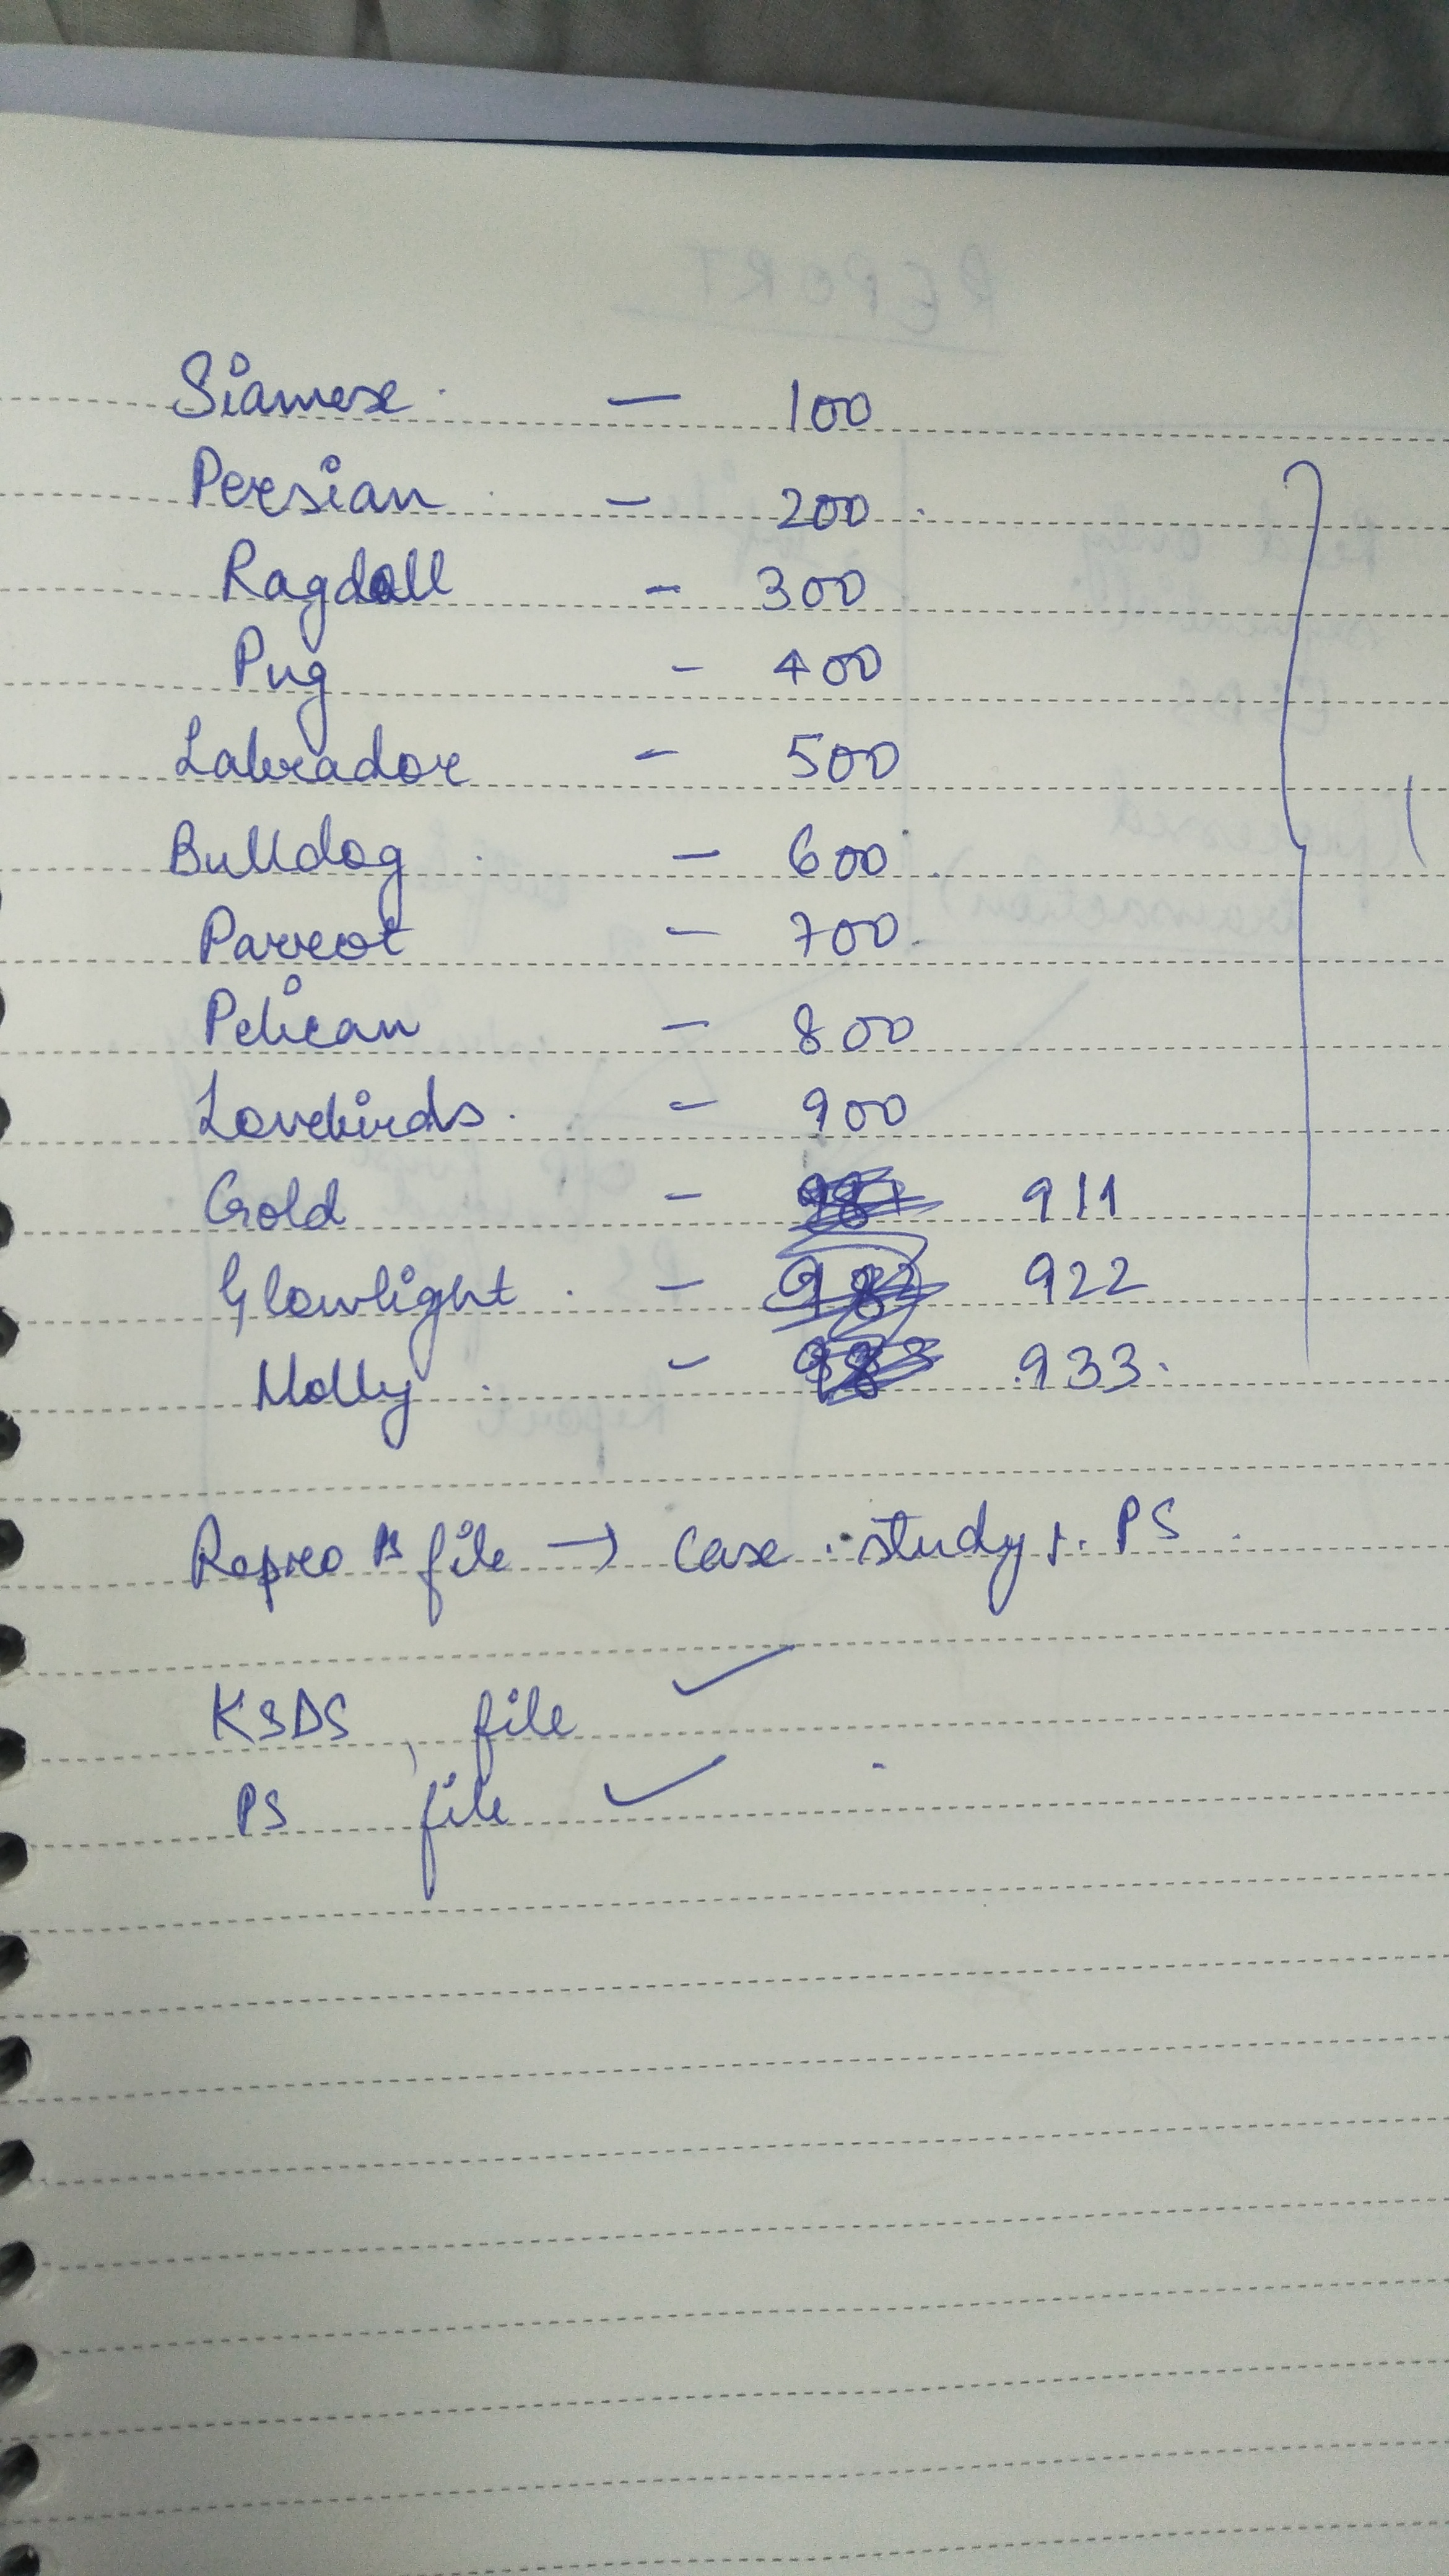 Siamese - 100
Persian - 200
Ragdoll - 300
Pug - 400
Labrador - 500
Bulldog - 600
Parrot - 700
Pelican - 800
Lovebirds - 900
Gold - 911
Glowlight - 922
Molly - 933
Repro PS file → Case study 1. PS
KSDS file ✓
PS file ✓